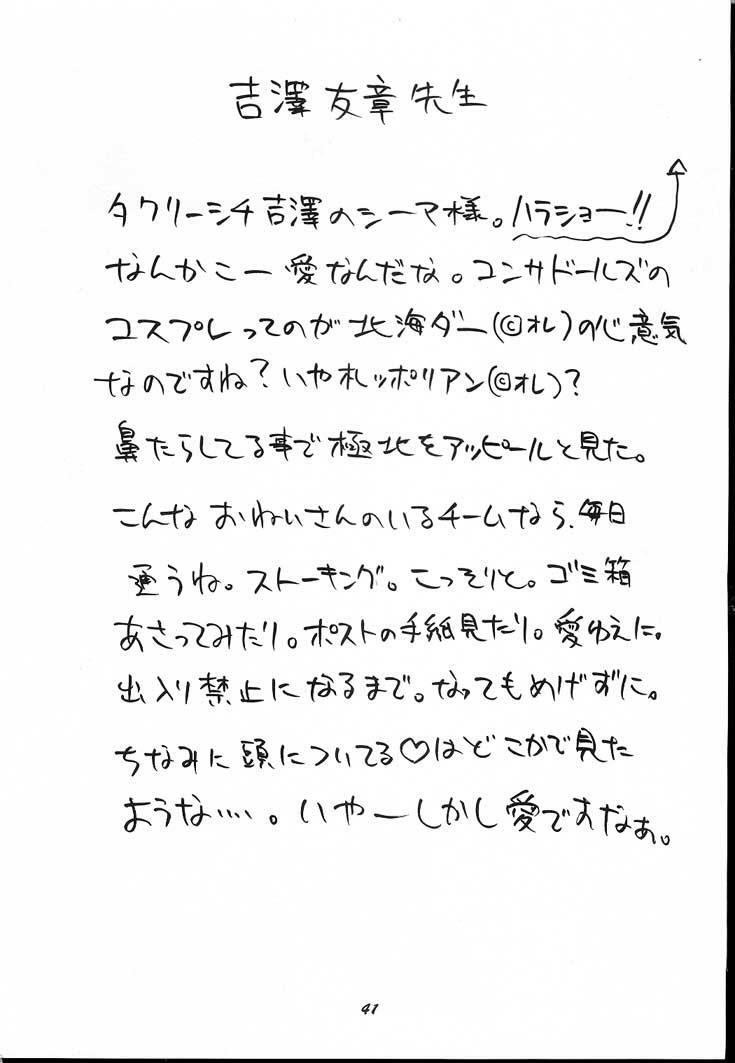 吉澤友章先生
タクリーシチ吉澤のシーマ様。ハラショー!!
なんかこー愛なんだな。コンサドールズの
コスプレってのが北海ダー(©オレ)の心意気
なのですね?いや札ッポリアン(©オレ)?
鼻たらしてる事で極北をアッピールと見た。
こんなおねいさんのいるチームなら、毎日
通うね。ストーキング。こっそりと。ゴミ箱
あさってみたり。ポストの手紙見たり。愛ゆえに。
出入り禁止になるまで。なってもめげずに。
ちなみに頭についてる♡はどこかで見た
ような…。いやーしかし愛ですなぁ。
41